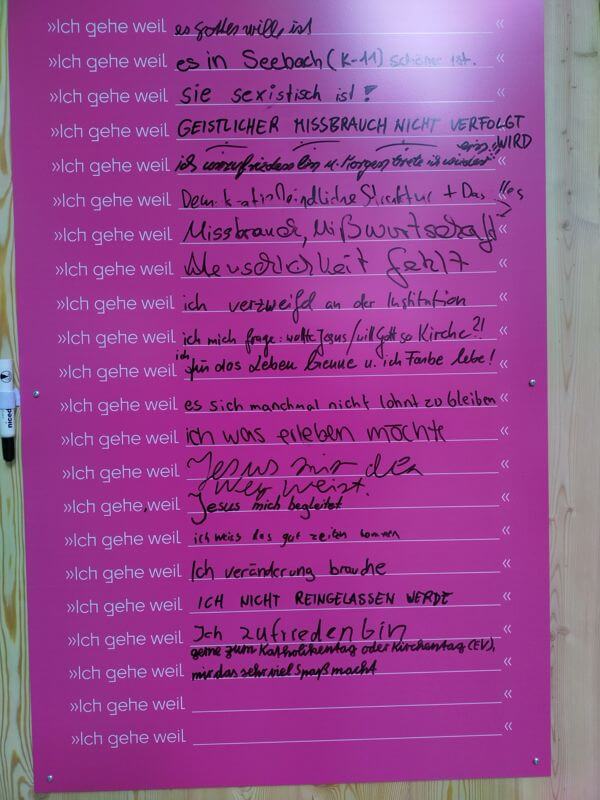 »Ich gehe weil es gottes will ist «
»Ich gehe weil es in Seebach (K-11) schöner ist. «
»Ich gehe weil sie sexistisch ist! «
»Ich gehe weil GEISTLICHER MISSBRAUCH NICHT VERFOLGT WIRD «
»Ich gehe weil ich unzufrieden bin u. Morgen trete ich wieder ein «
»Ich gehe weil Struktur + Das «
»Ich gehe weil Missbrauch, Mißwirtschaft «
»Ich gehe weil Menschlichkeit fehlt «
»Ich gehe weil ich verzweifel an der Institution «
»Ich gehe weil ich mich frage: wollte Jesus/will Gott so Kirche?! «
»Ich gehe weil ich für das Leben brenne u. ich Farbe lebe! «
»Ich gehe weil es sich manchmal nicht lohnt zu bleiben «
»Ich gehe weil ich was erleben möchte «
»Ich gehe weil Jesus mir den Weg weist. «
»Ich gehe weil Jesus mich begleitet «
»Ich gehe weil ich weiss das gut zeiten kommen «
»Ich gehe weil Ich veränderung brauche «
»Ich gehe weil ICH NICHT REINGELASSEN WERDE «
»Ich gehe weil Ich zufrieden bin «
gerne zum Katholikentag oder Kirchentag (EV),
»Ich gehe weil mir das sehr viel Spaß macht «
»Ich gehe weil «
»Ich gehe weil «